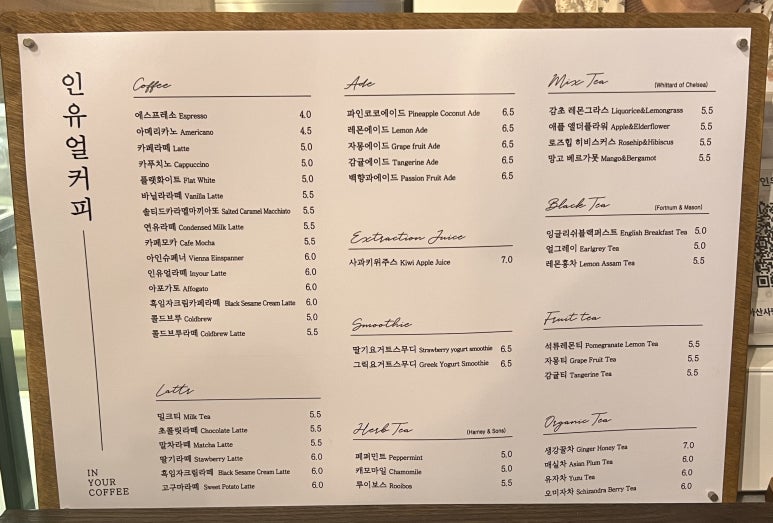 인유얼커피
IN
YOUR
COFFEE
Coffee
에스프레소 Espresso 4.0
아메리카노 Americano 4.5
카페라떼 Latte 5.0
카푸치노 Cappuccino 5.0
플랫화이트 Flat White 5.0
바닐라라떼 Vanilla Latte 5.5
솔티드카라멜마끼아또 Salted Caramel Macchiato 5.5
연유라떼 Condensed Milk Latte 5.5
카페모카 Cafe Mocha 5.5
아인슈페너 Vienna Einspanner 6.0
인유얼라떼 Inyour Latte 6.0
아포가토 Affogato 6.0
흑임자크림카페라떼 Black Sesame Cream Latte 6.0
콜드브루 Coldbrew 5.0
콜드브루라떼 Coldbrew Latte 5.5
Latte
밀크티 Milk Tea 5.5
초콜릿라떼 Chocolate Latte 5.5
말차라떼 Matcha Latte 5.5
딸기라떼 Stawberry Latte 6.0
흑임자크림라떼 Black Sesame Cream Latte 6.0
고구마라떼 Sweet Potato Latte 6.0
Ade
파인코코에이드 Pineapple Coconut Ade 6.5
레몬에이드 Lemon Ade 6.5
자몽에이드 Grape fruit Ade 6.5
감귤에이드 Tangerine Ade 6.5
백향과에이드 Passion Fruit Ade 6.5
Extraction Juice
사과키위주스 Kiwi Apple Juice 7.0
Smoothie
딸기요거트스무디 Strawberry yogurt smoothie 6.5
그릭요거트스무디 Greek Yogurt Smoothie 6.5
Herb Tea (Harney & Sons)
페퍼민트 Peppermint 5.0
캐모마일 Chamomile 5.0
루이보스 Rooibos 5.5
Mix Tea (Whittard of Chelsea)
감초 레몬그라스 Liquorice&Lemongrass 5.5
애플 엘더플라워 Apple&Elderflower 5.5
로즈힙 히비스커스 Rosehip&Hibiscus 5.5
망고 베르가못 Mango&Bergamot 5.5
Black Tea (Fortnum & Mason)
잉글리쉬블랙퍼스트 English Breakfast Tea 5.0
얼그레이 Earlgrey Tea 5.0
레몬홍차 Lemon Assam Tea 5.5
Fruit tea
석류레몬티 Pomegranate Lemon Tea 5.5
자몽티 Grape Fruit Tea 5.5
감귤티 Tangerine Tea 5.5
Organic Tea
생강꿀차 Ginger Honey Tea 7.0
매실차 Asian Plum Tea 6.0
유자차 Yuzu Tea 6.0
오미자차 Schizandra Berry Tea 6.0